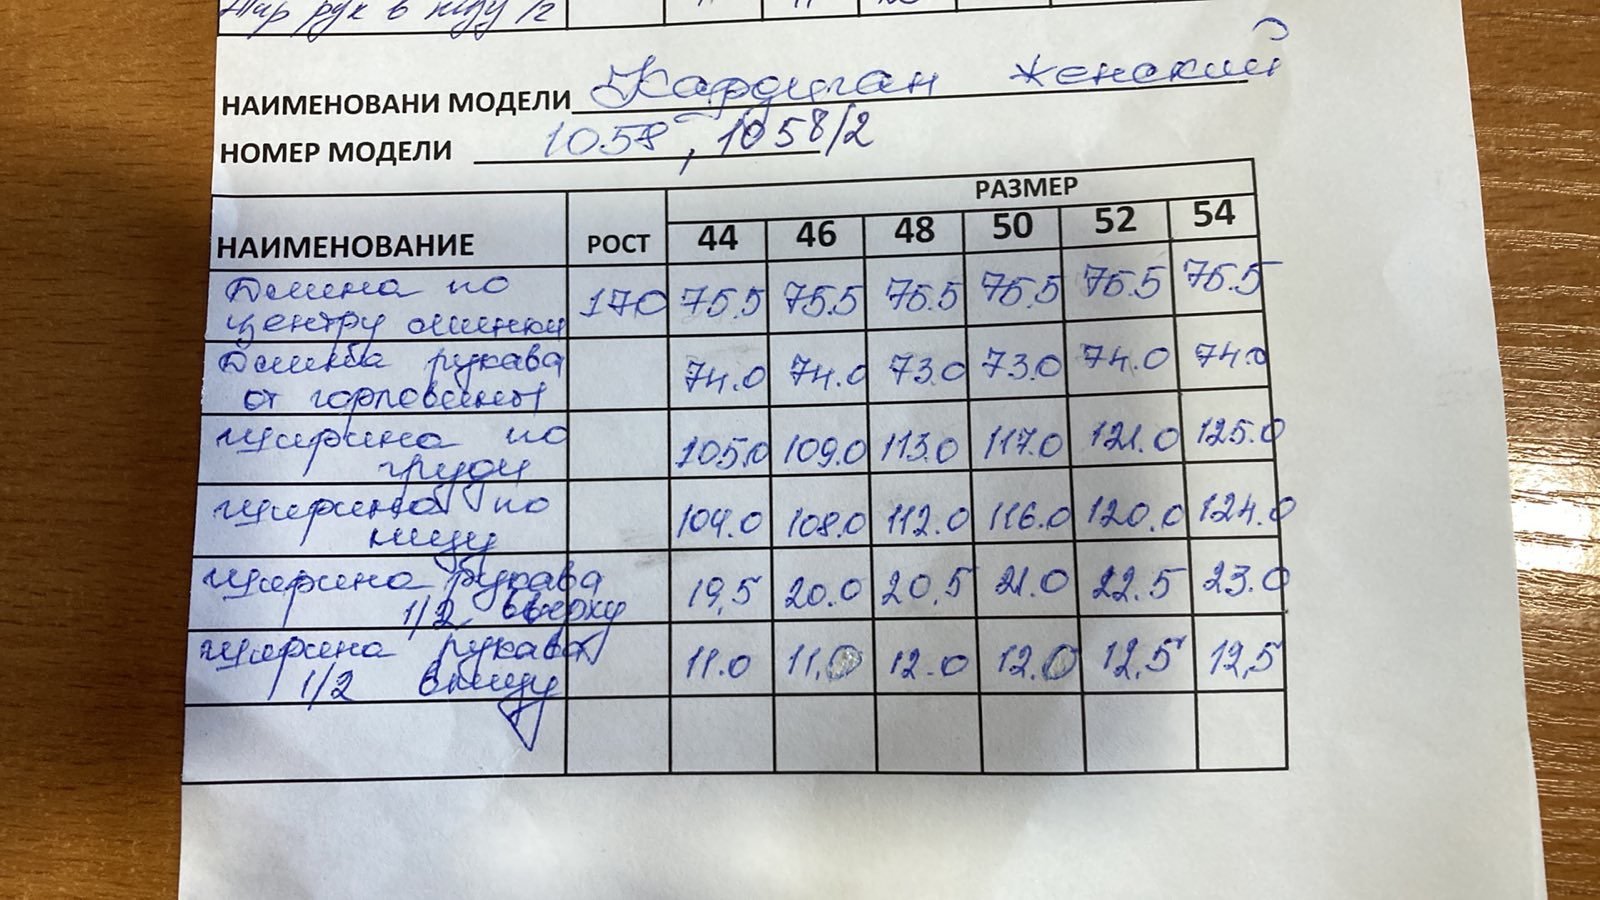 Шир рук в низу 1/2
НАИМЕНОВАНИ МОДЕЛИ Кардиган женский
НОМЕР МОДЕЛИ 1058, 1058/2
РАЗМЕР
НАИМЕНОВАНИЕ РОСТ 44 46 48 50 52 54
Длина по
центру спинки 170 75.5 75.5 75.5 75.5 75.5 75.5
Длина рукава
от горловины 74.0 74.0 73.0 73.0 74.0 74.0
Ширина по
груди 105.0 109.0 113.0 117.0 121.0 125.0
Ширина по
низу 104.0 108.0 112.0 116.0 120.0 124.0
Ширина рукава
1/2 вверху 19,5 20.0 20,5 21.0 22.5 23.0
Ширина рукава
1/2 внизу 11.0 11.0 12.0 12.0 12,5 12,5